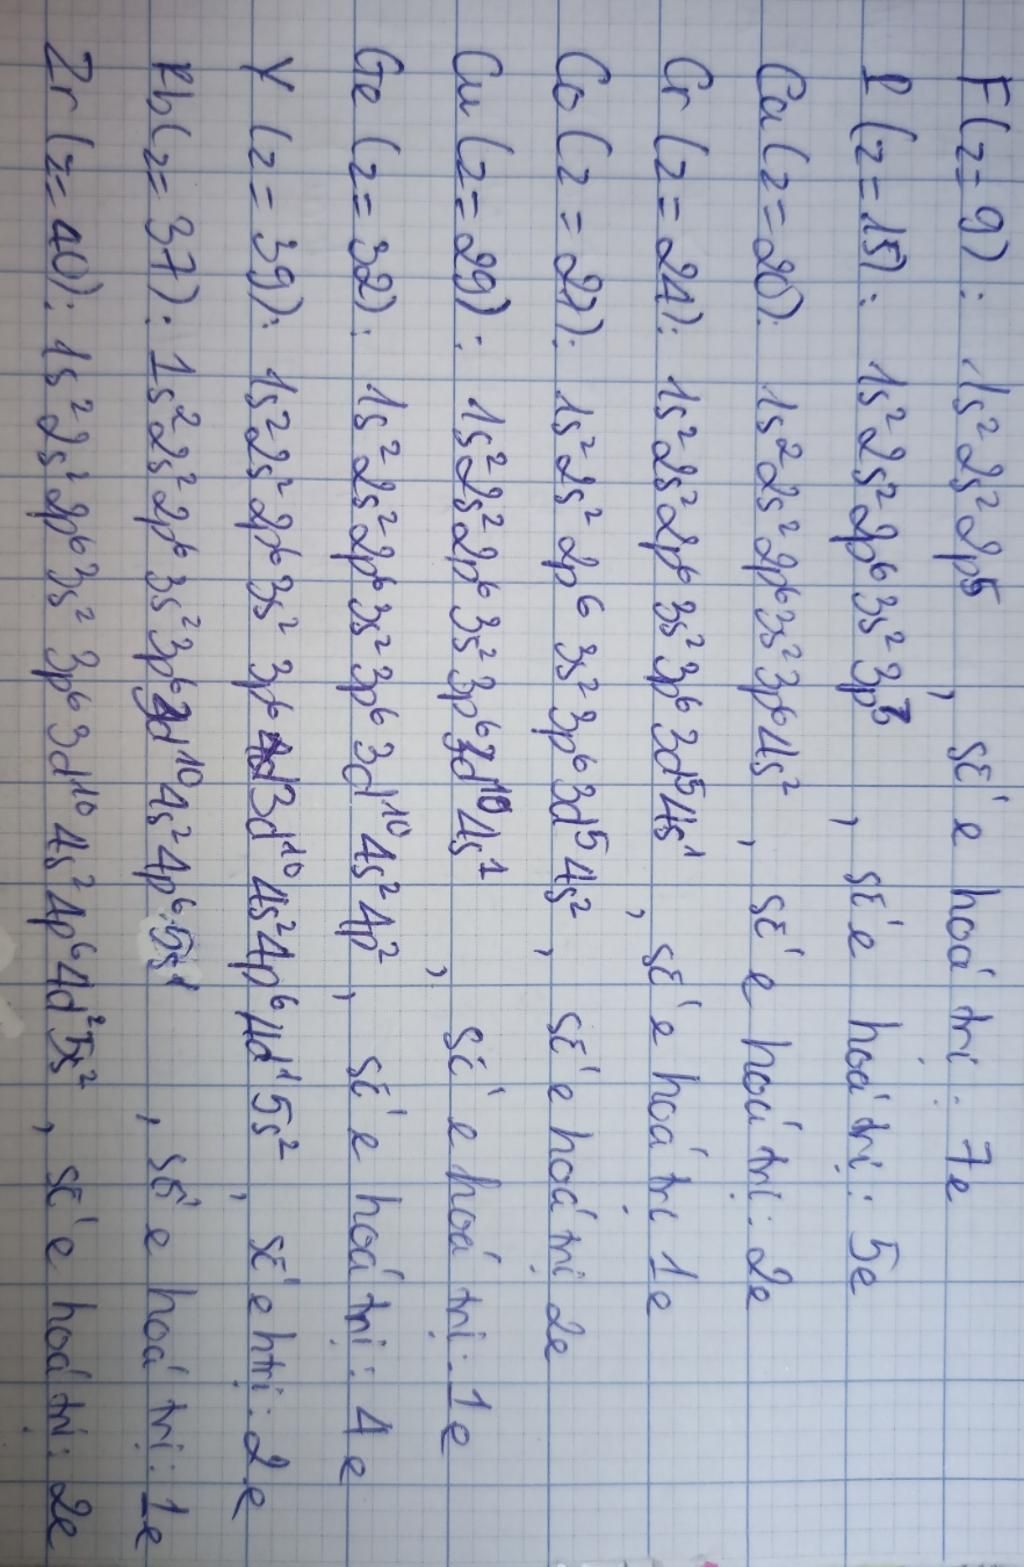 F (z = 9) : 1s² 2s² 2p⁵ , số e hoá trị : 7e
P (z = 15) : 1s² 2s² 2p⁶ 3s² 3p³ , số e hoá trị : 5e
Ca (z = 20) : 1s² 2s² 2p⁶ 3s² 3p⁶ 4s² , số e hoá trị : 2e
Cr (z = 24) : 1s² 2s² 2p⁶ 3s² 3p⁶ 3d⁵ 4s¹ , số e hoá trị 1e
Co (z = 27) : 1s² 2s² 2p⁶ 3s² 3p⁶ 3d⁵ 4s² , số e hoá trị 2e
Cu (z = 29) : 1s² 2s² 2p⁶ 3s² 3p⁶ 3d¹⁰ 4s¹ , số e hoá trị : 1e
Ge (z = 32) : 1s² 2s² 2p⁶ 3s² 3p⁶ 3d¹⁰ 4s² 4p² , số e hoá trị : 4e
Y (z = 39) : 1s² 2s² 2p⁶ 3s² 3p⁶ 3d¹⁰ 4s² 4p⁶ 4d¹ 5s² , số e htrị : 2e
Rb (z = 37) : 1s² 2s² 2p⁶ 3s² 3p⁶ 3d¹⁰ 4s² 4p⁶ 5s¹ , số e hoá trị : 1e
Zr (z = 40) : 1s² 2s² 2p⁶ 3s² 3p⁶ 3d¹⁰ 4s² 4p⁶ 4d² 5s² , số e hoá trị : 2e